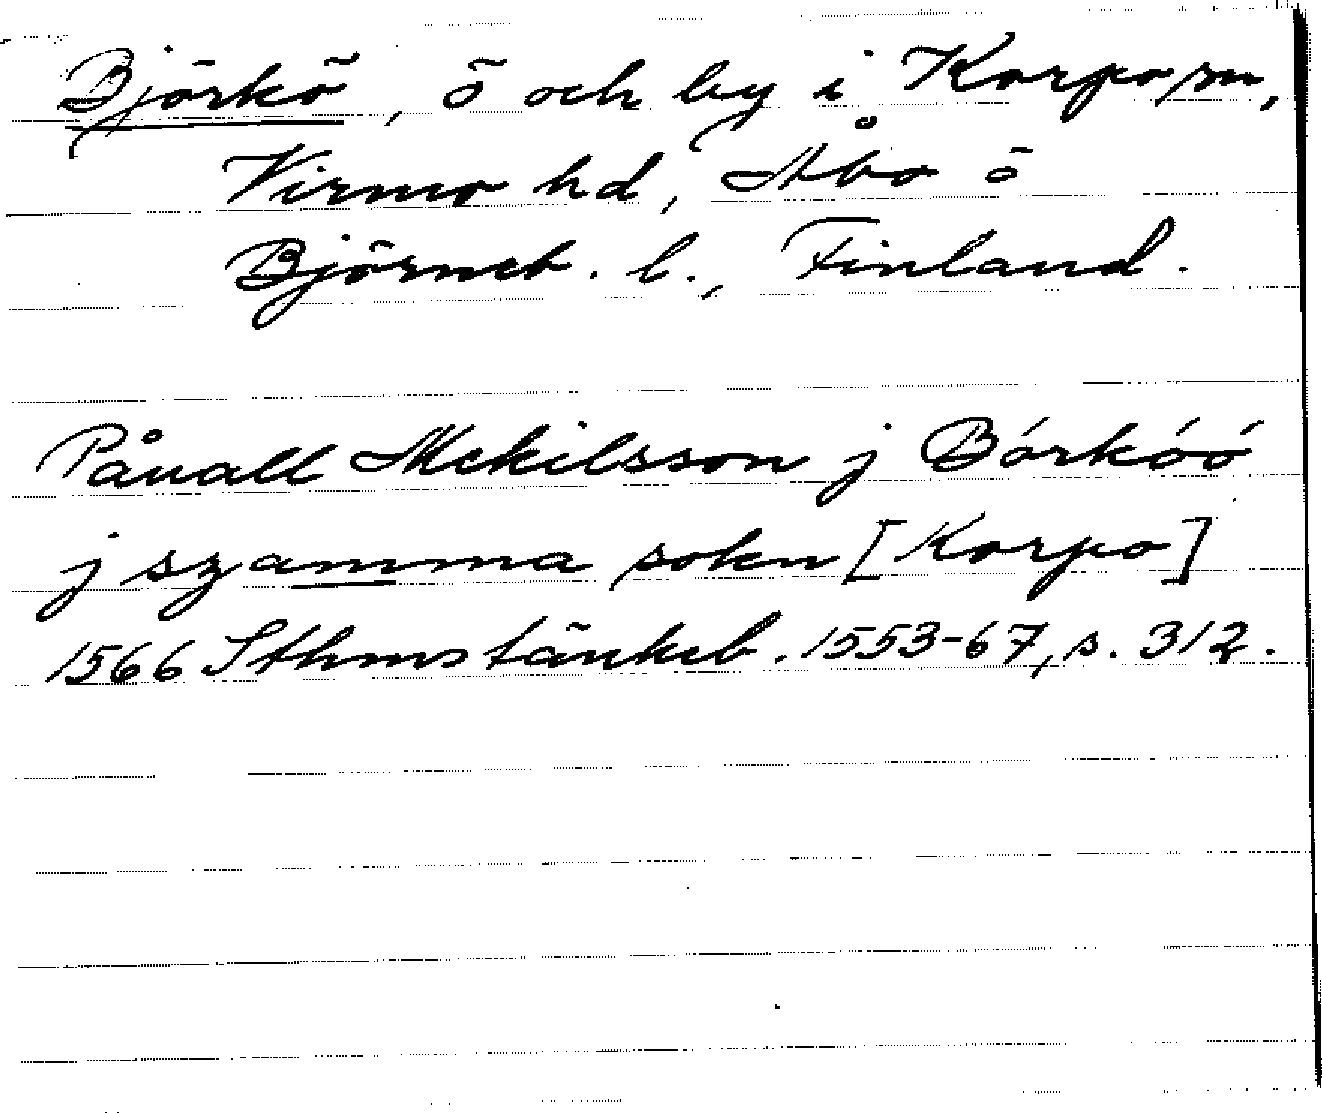 Björkö, ö och by i Korpo sn,
Virmo hd, Åbo ö
Björneb. l., Finland.
Påuall Mekilsson j Bórkóó
j szamma sokn [Korpo]
1566 Sthms tänkeb. 1553-67, s. 312.